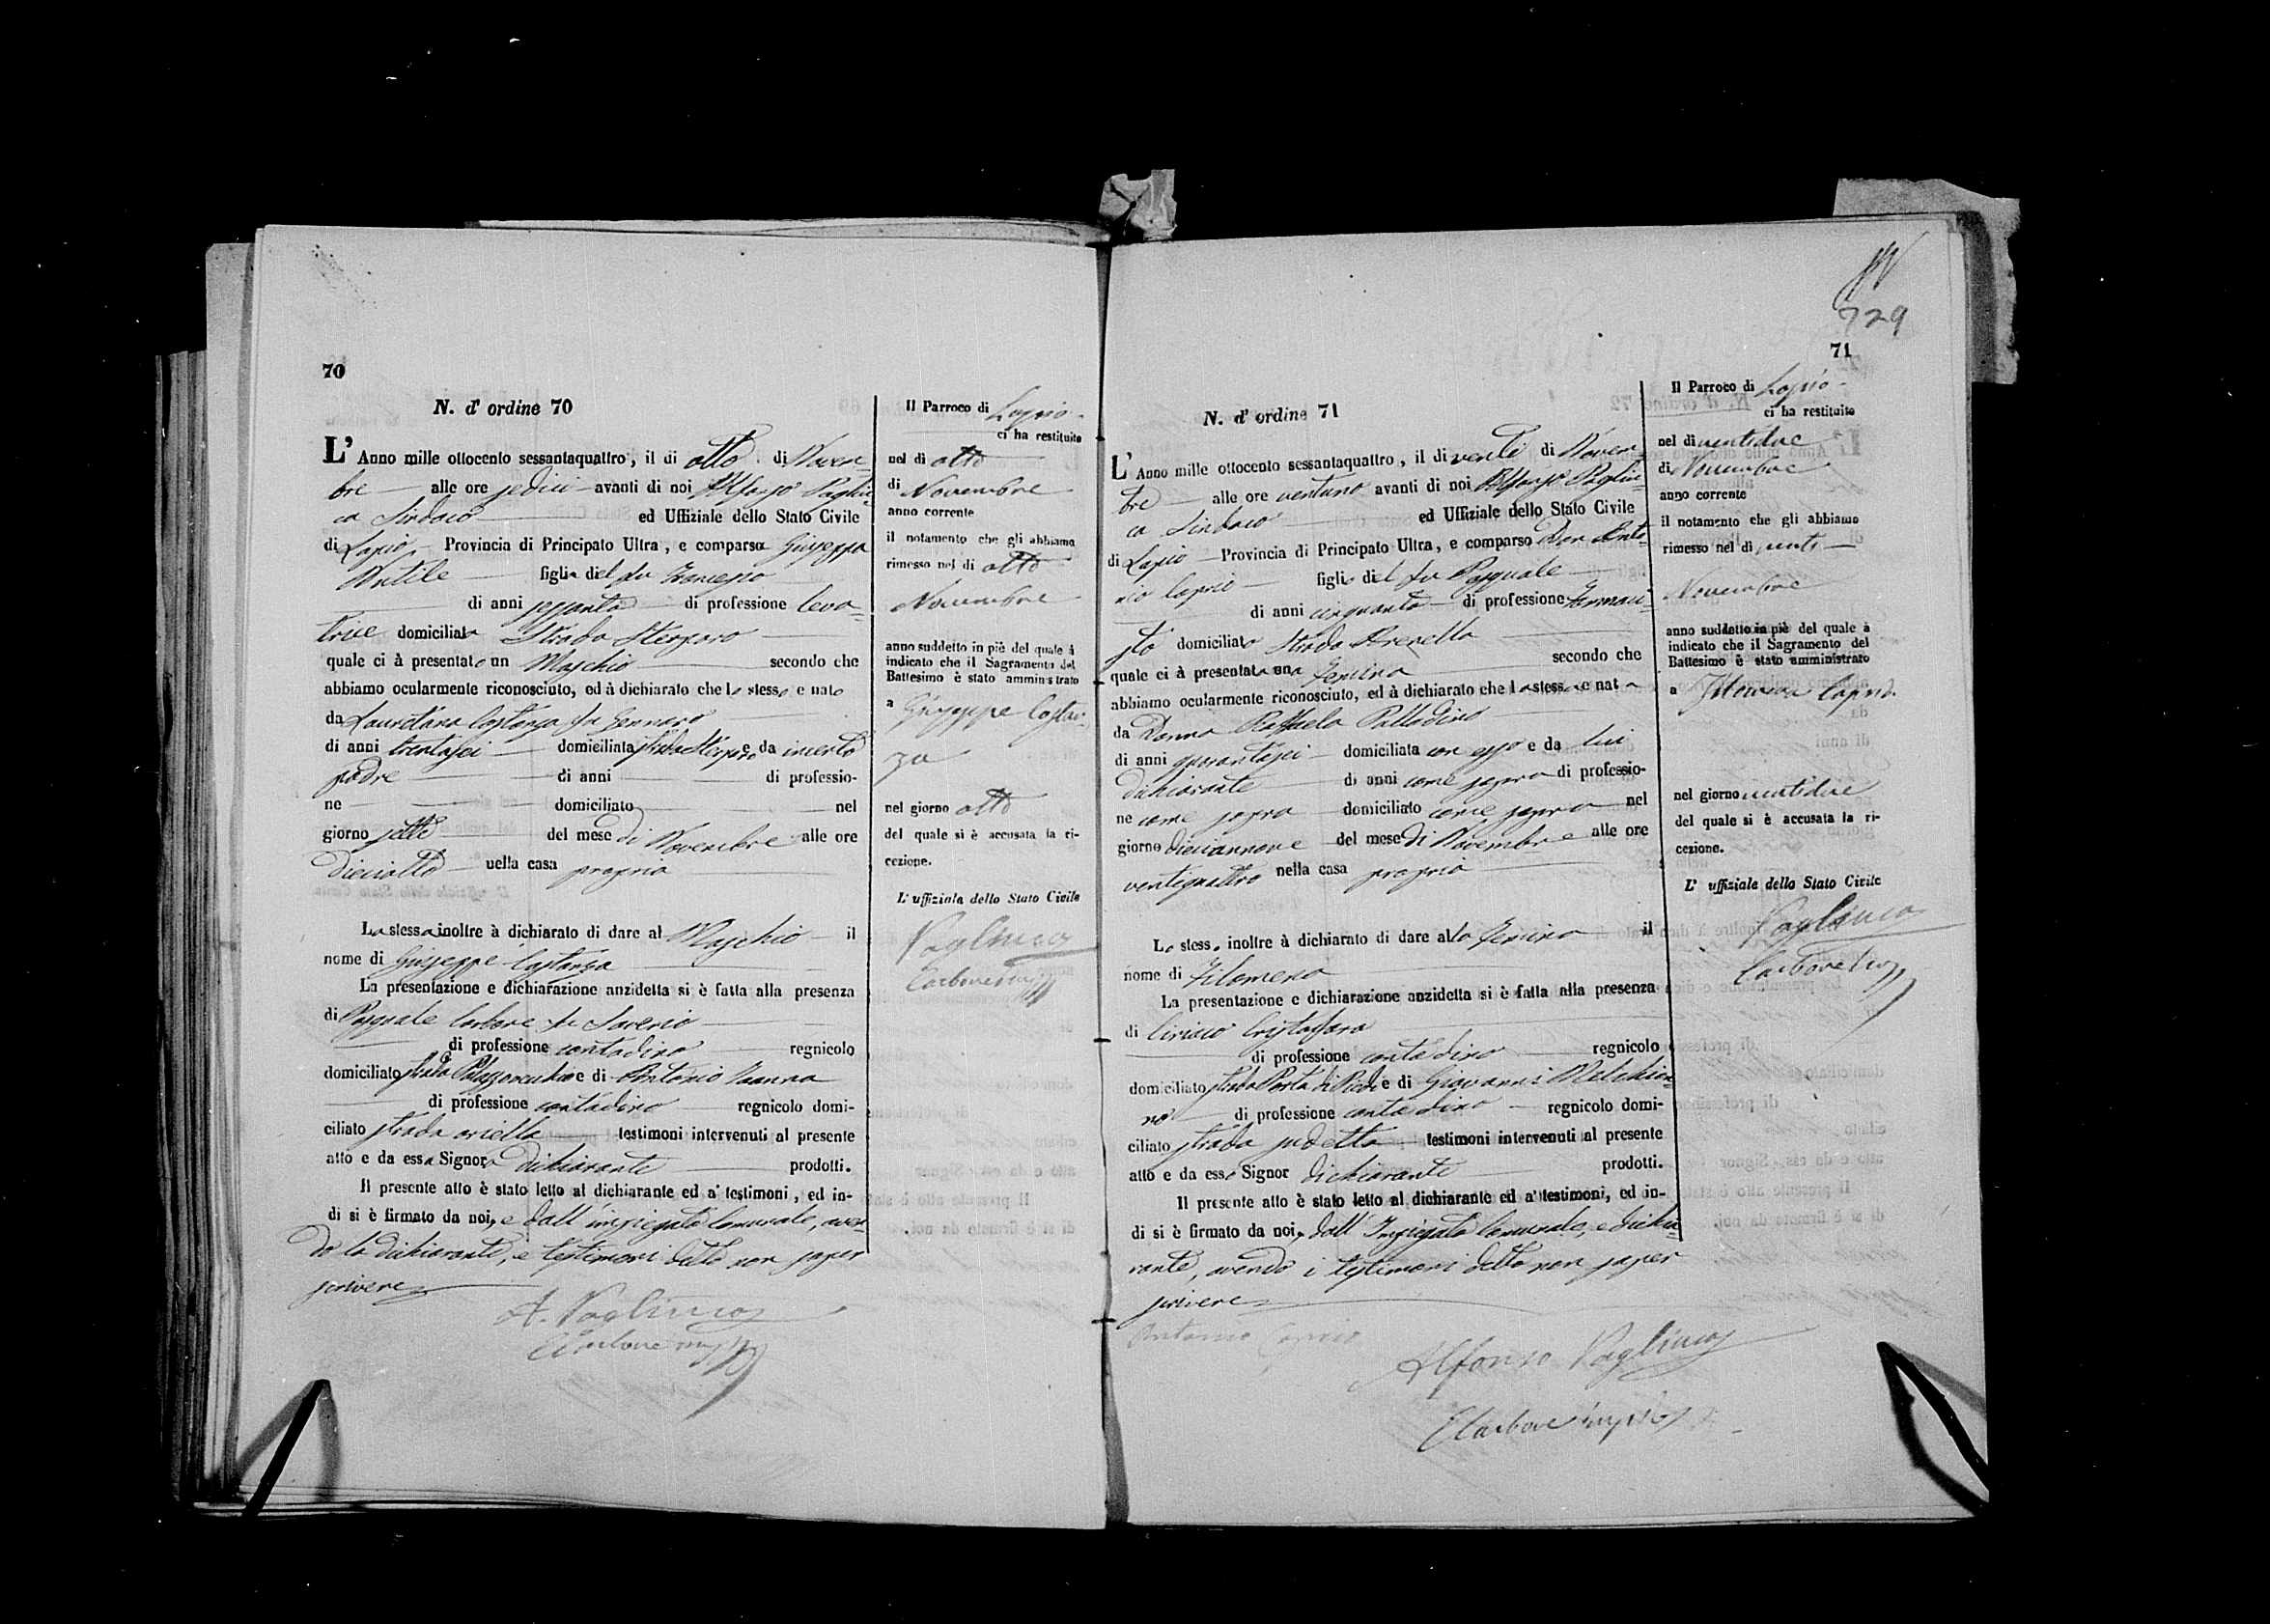 70
N. d' ordine 70
L' Anno mille ottocento sessantaquattro, il di otto di Novem=
bre alle ore sedici avanti di noi Alfonso Pagliu=
ca Sindaco ed Uffiziale dello Stato Civile
di Lapio Provincia di Principato Ultra, e comparsa Giuseppa
figlia del fu Francesco
di anni sessanta di professione leva=
trice domiciliata Strada
quale ci à presentato un Maschio secondo che
abbiamo ocularmente riconosciuto, ed à dichiarato che lo stesso e nato
da Lauretana Costanza fu Gennaro
di anni trentasei domiciliata strada e da incerto
padre di anni di professio-
ne domiciliato nel
giorno sette del mese di Novembre alle ore
dieciotto nella casa propria
La stessa inoltre à dichiarato di dare al Maschio il
nome di Giuseppe Costanza
La presentazione e dichiarazione anzidetta si è fatta alla presenza
di Pasquale Carbone fu Saverio
di professione contadino regnicolo
domiciliato strada e di Antonio
di professione contadino regnicolo domi-
ciliato strada ariella testimoni intervenuti al presente
atto e da essa Signora dichiarante prodotti.
Il presente atto è stato letto al dichiarante ed a' testimoni, ed in-
di si è firmato da noi, e dall' impiegato Comunale, aven=
do la dichiarante, e testimoni detto non saper
scrivere
A. Pagliuca
Carbone
Il Parroco di Lapio
ci ha restituito
nel di otto
di Novembre
anno corrente
il notamento che gli abbiamo
rimesso nel di otto
Novembre
anno suddetto in piè del quale à
indicato che il Sagramento del
Battesimo è stato amministrato
a Giuseppe Costan=
za
nel giorno otto
del quale si è accusata la ri-
cezione.
L' uffiziale dello Stato Civile
Pagliuca
Carbone
729
71
N. d' ordine 71
L' Anno mille ottocento sessantaquattro, il di venti di Novem=
bre alle ore ventuno avanti di noi Alfonso Pagliu=
ca Sindaco ed Uffiziale dello Stato Civile
di Lapio Provincia di Principato Ultra, e comparso Don Anto=
nio Caprio figlio del fu Pasquale
di anni cinquanta di professione Farmaci=
sta domiciliato Strada Arenella
quale ci à presentata una Femina secondo che
abbiamo ocularmente riconosciuto, ed à dichiarato che la stessa e nata
da Donna Raffaela Palladino
di anni quarantasei domiciliata con esso e da lui
dichiarante di anni come sopra di professio-
ne come sopra domiciliato come sopra nel
giorno diciannove del mese di Novembre alle ore
ventiquattro nella casa propria
Lo stesso inoltre à dichiarato di dare alla Femina il
nome di Filomena
La presentazione e dichiarazione anzidetta si è fatta alla presenza
di Ciriaco Cristofaro
di professione contadino regnicolo
domiciliato strada Porta di Piedi e di Giovanni Melchion=
no di professione contadino regnicolo domi-
ciliato strada sudetta testimoni intervenuti al presente
atto e da esso Signor dichiarante prodotti.
Il presente atto è stato letto al dichiarante ed a' testimoni, ed in-
di si è firmato da noi, dall' Impiegato Comunale, e dichia=
rante, avendo i testimoni detto non saper
scrivere
Antonio Caprio
Alfonso Pagliuca
Carbone
Il Parroco di Lapio
ci ha restituito
nel di ventidue
di Novembre
anno corrente
il notamento che gli abbiamo
rimesso nel di venti
Novembre
anno suddetto in piè del quale à
indicato che il Sagramento del
Battesimo è stato amministrato
a Filomena Caprio
nel giorno ventidue
del quale si è accusata la ri-
cezione.
L' uffiziale dello Stato Civile
Pagliuca
Carbone